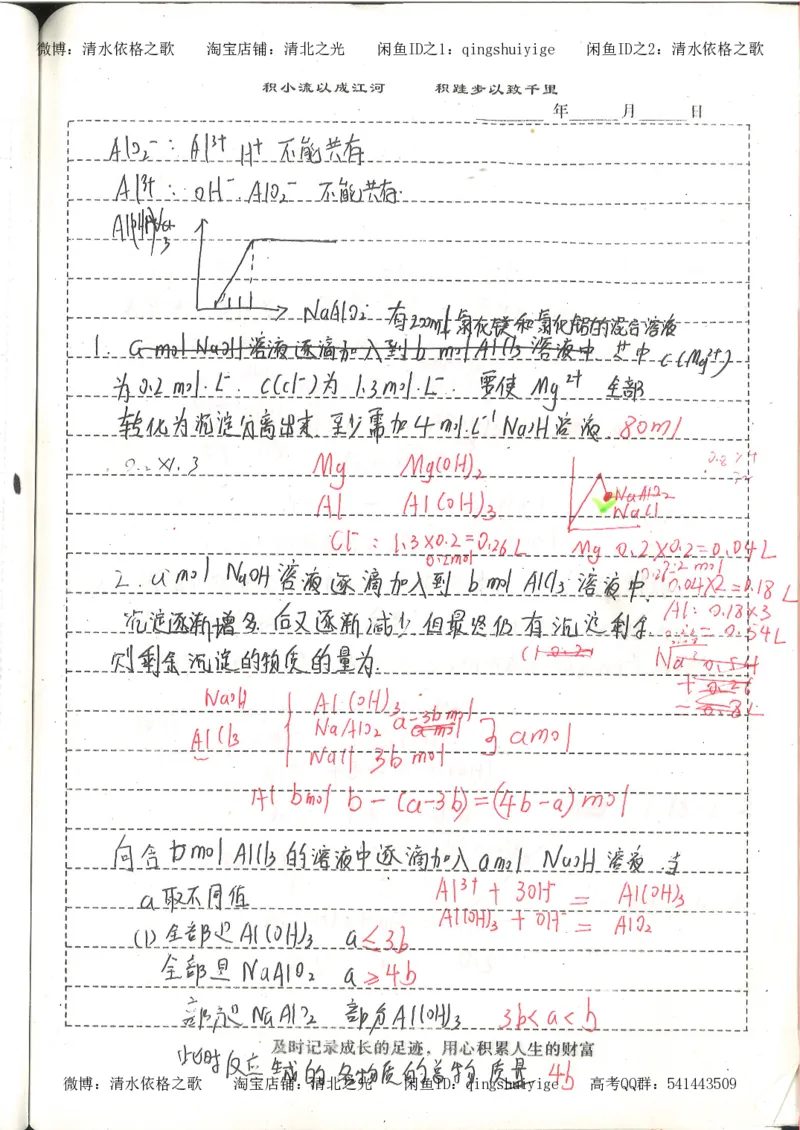 微博：清水依格之歌 淘宝店铺：清北之光 闲鱼ID之1：qingshuiyige 闲鱼ID之2：清水依格之歌
积小流以成江河 积跬步以致千里
年 月 日
AlO₂⁻：Al³⁺ H⁺ 不能共存
Al³⁺：OH⁻. AlO₂⁻ 不能共存.
NaAlO₂
有200ml氯化镁和氯化铝的混合溶液
1. a mol NaOH溶液逐滴加入到 b mol AlCl₃ 溶液中 其中 c(Mg²⁺)
为0.2 mol·L⁻. C(Cl⁻)为 1.3 mol·L⁻. 要使 Mg²⁺ 全部
转化为沉淀分离出来. 至少需加 4 mol·L⁻¹ NaOH溶液. 80ml
Mg Mg(OH)₂
Al Al(OH)₃
NaAlO₂
NaCl
Cl⁻：1.3×0.2=0.26L
Mg 0.2×0.2=0.04L
2. a mol NaOH溶液逐滴加入到 b mol AlCl₃ 溶液中.
沉淀逐渐增多 后又逐渐减少 但最终仍有沉淀剩余
则剩余沉淀的物质的量为.
0.04×2=0.18L
Al：0.18×3
=0.54L
NaOH Al(OH)₃
AlCl₃ NaAlO₂ a-3b mol } a mol
NaCl 3b mol
Al b mol b-(a-3b)=(4b-a) mol
向含 b mol AlCl₃ 的溶液中逐滴加入 a mol NaOH 溶液 当
a取不同值
Al³⁺ + 3OH⁻ = Al(OH)₃
Al(OH)₃ + OH⁻ = AlO₂
(1) 全部是Al(OH)₃ a≤3b
全部是 NaAlO₂ a≥4b
部分是 NaAlO₂ 部分Al(OH)₃ 3b<a<b
及时记录成长的足迹，用心积累人生的财富
此时反应生成的各物质的总物质量 4b
微博：清水依格之歌 淘宝店铺：清北之光 闲鱼ID：qingshuiyige 高考QQ群：541443509